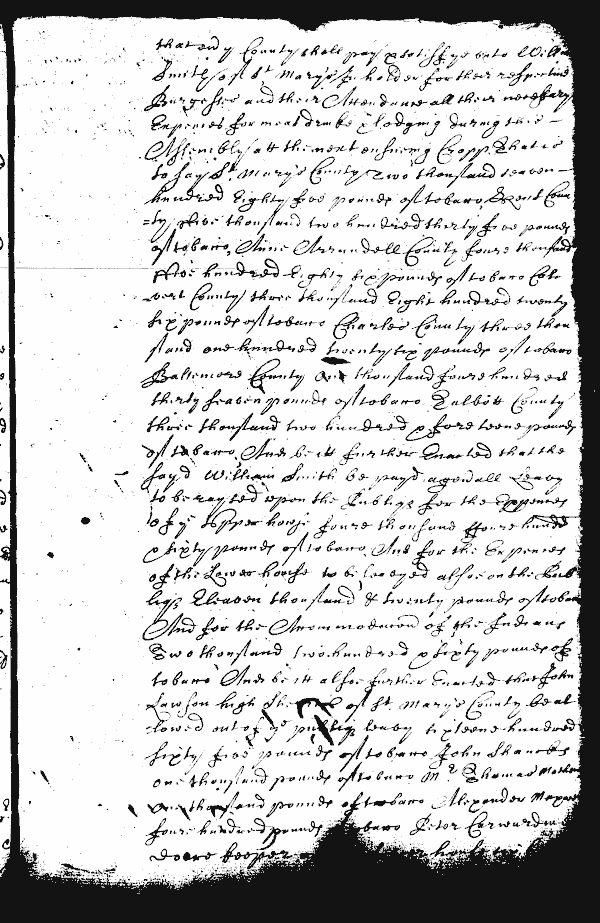 that evy County shall pay & satisfye unto Willm
Smith of St Marys Inholder for their respective
Burgesses and their Attendance all their necessary
Expences for meat drinke & lodging during this
Assembly att the next ensueing Cropp, That is
to say St Marys County Two thousand seaven
hundred Eighty five pounds of tobacco, Kent Coun
=ty five thousand two hundred thirty five pounds
of tobacco, Anne Arrundell County foure thousand
five hundred Eighty six pounds of tobacco Calv
vert County three thousand Eight hundred twenty
six pounds of tobacco Charles County three thou
sand one hundred twenty six pounds of tobacco
Baltemore County One thousand foure hundred
thirty seaven pounds of tobacco Talbott County
three thousand two hundred & foreteene pounds
of tobacco, And be itt further Enacted that the
sayd William Smith be payd a genall Leavy
to be raysed upon the Publiqe for the Expences
of ye Upper howse foure thousand foure hund
& sixty pounds of tobacco, And for the Expences
of the Lower howse to be leveyed alsoe on the Pub
liqe Eleaven thousand & twenty pounds of tobacco
And for the Accommodacon of the Indians
Two thousand two hundred & sixty pounds of
tobacco And be itt alsoe further Enacted that John
Lawson high Sheriffe of St Marys County be al
lowed out of ye publiq leavy sixteene hundred
sixty five pounds of tobacco John Shancks
one thousand pounds of tobacco Mr Thomas
One thousand pounds of tobacco Alexander
foure hundred pounds tobacco Peter
doore keeper howse